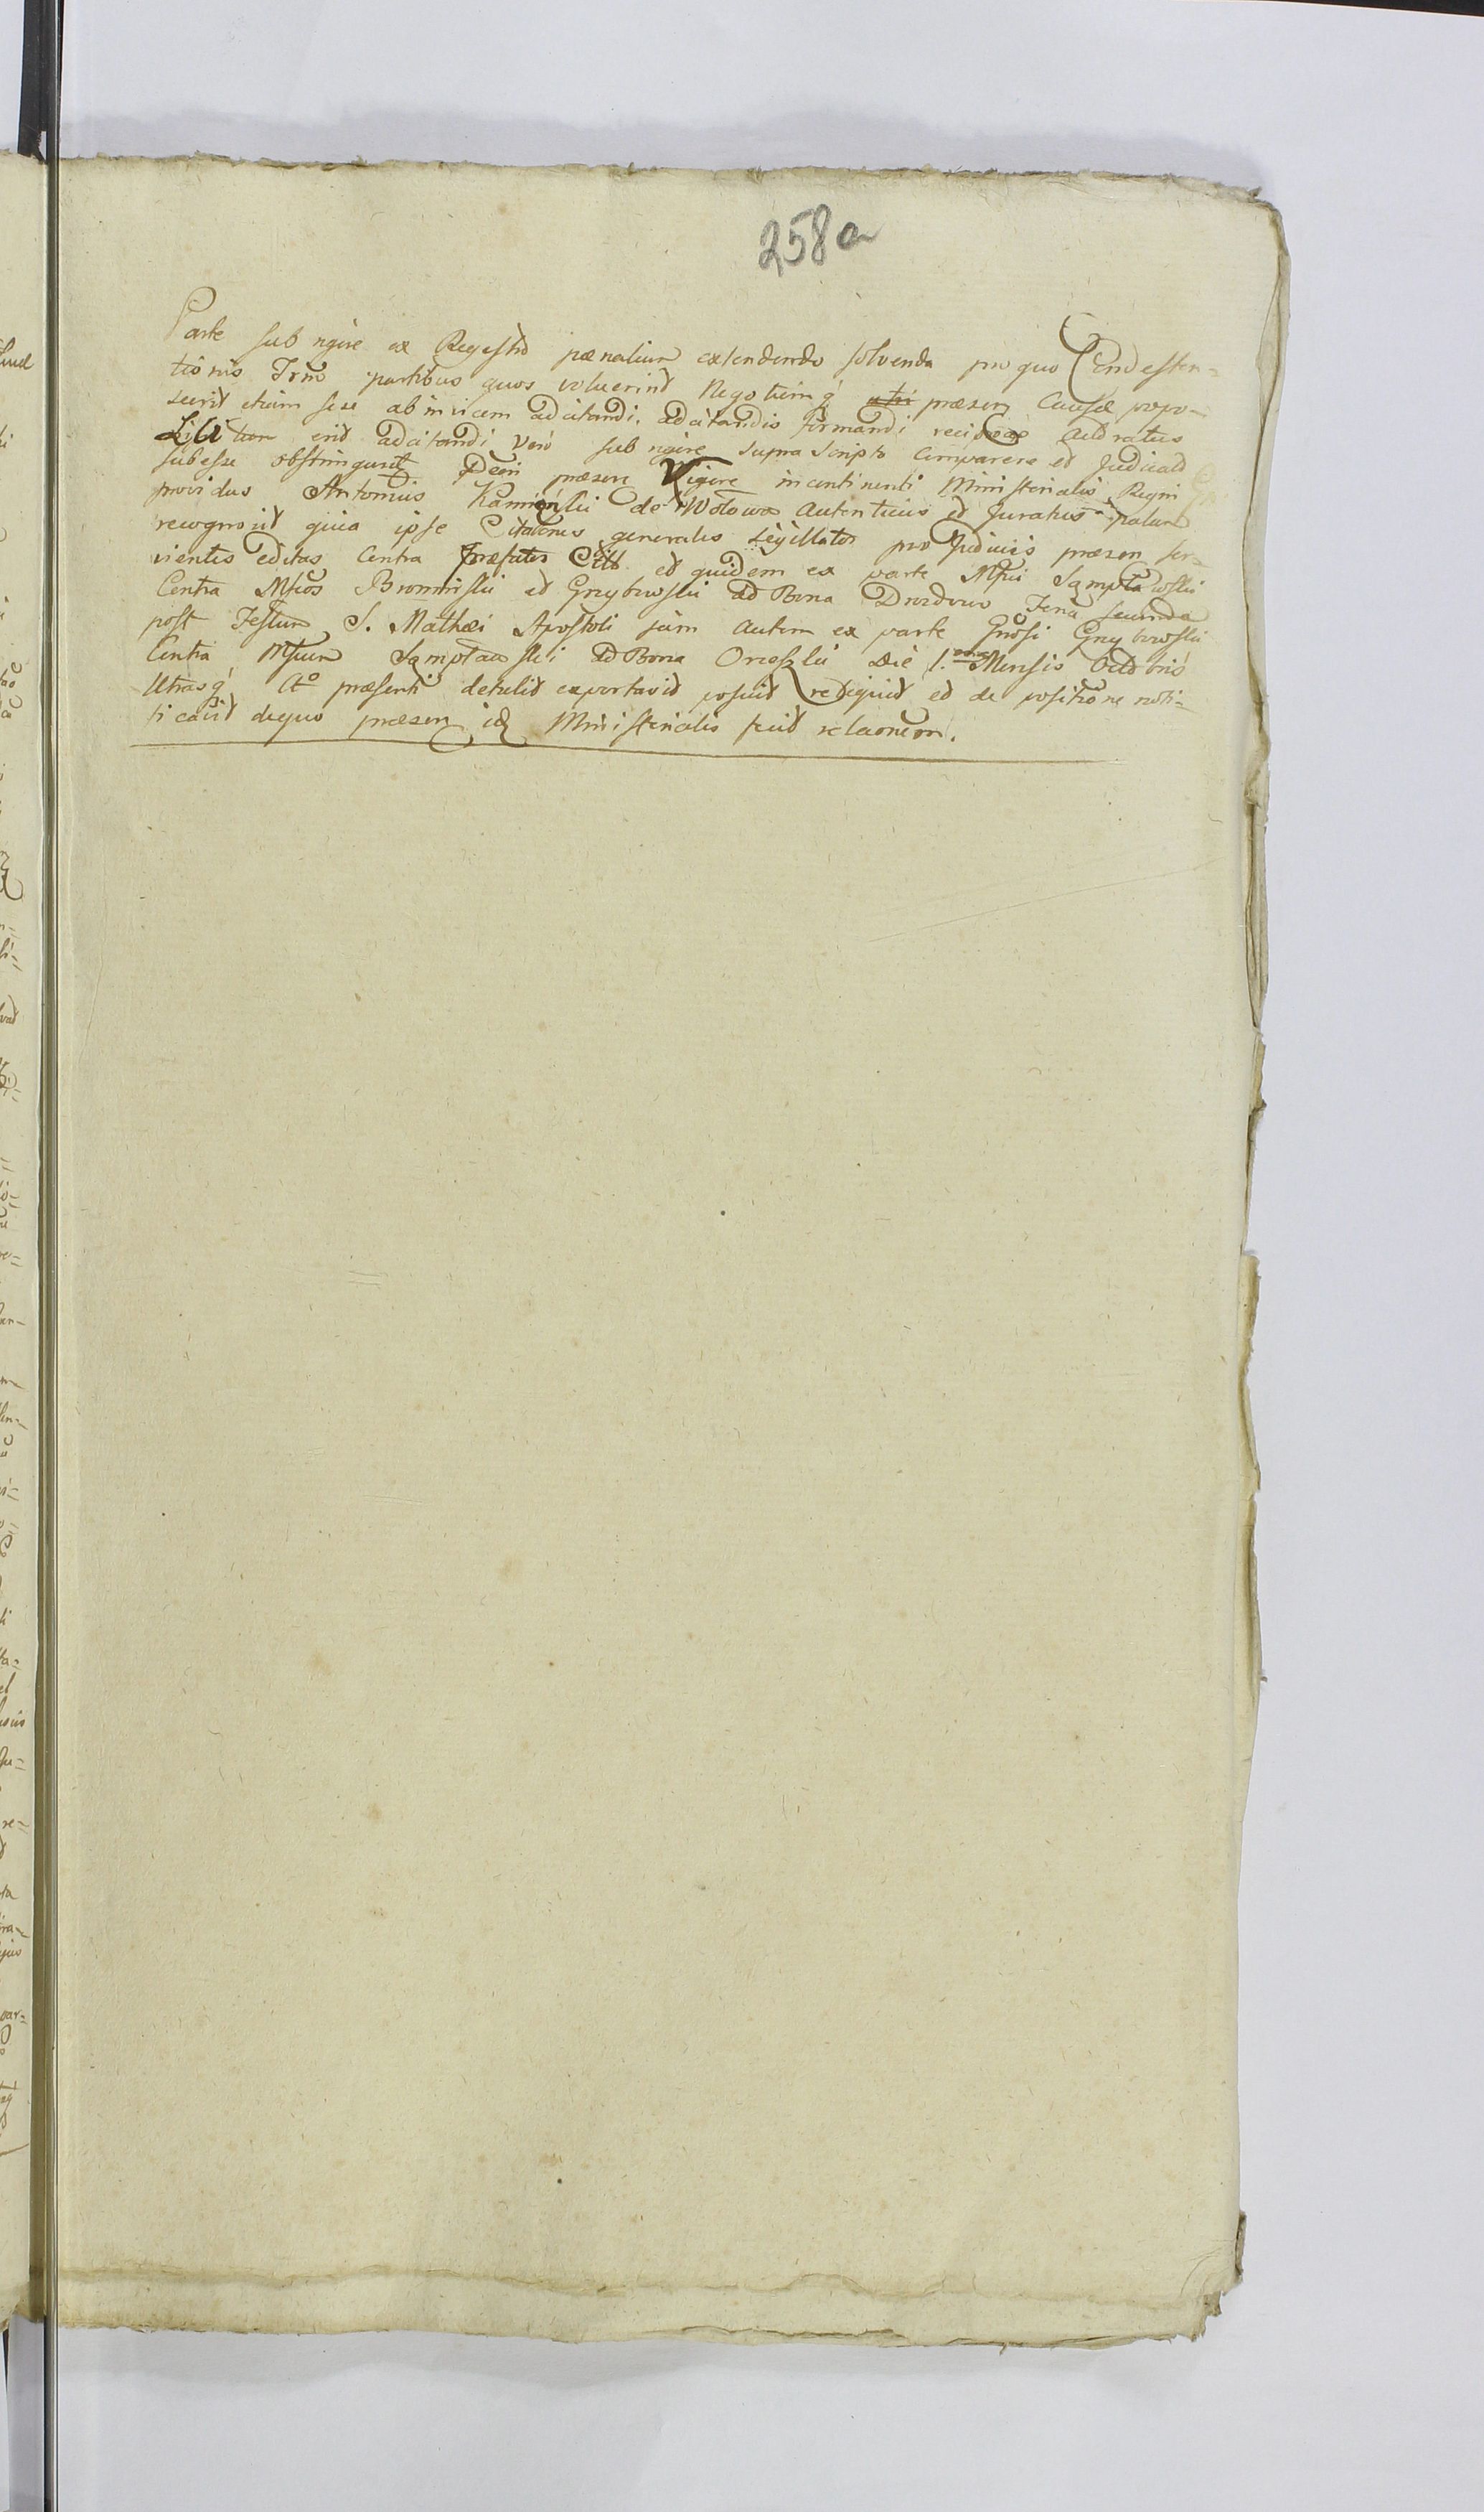 258a
Parte sub rigore ex Regestro pœnalium extendendo solvenda pro quo Condesten=
tionis Trno partibus quos voluerint Negotiumq præsen Causæ propo-
suerit etiam sese ab invicem adcitandi, adcitandis firmandi Actoratus
erit adcitandi vero sub rigore supra scripto comparere et Judicatd
subesse obstringunt præsen Vigore in continenti Ministerialis Regni
providus Antonius Kamieński de Wołowa Autenticus et Juratus palam
recognovit quia ipse Citatiōnes generales Sigillatas pro Judiciis præsen ser-
vientes editas Contra Præfatos Citt et quidem ex parte Mfici Sampławski
Contra Mficos Bromirski et Grzybowski ad Bona Drozdowo Feria secunda
post Festum S. Mathæi Apostoli jam autem ex parte Gnosi Grzybowski
Contra Mficum Sampławski ad Bona Orzeszki Die 1. Mensis Octobris
Utrasq Aº præsenti detulit exportavit posuit rediquit et de positione noti=
ficavit dequo præsen idq Ministerialis fecit relaonem.